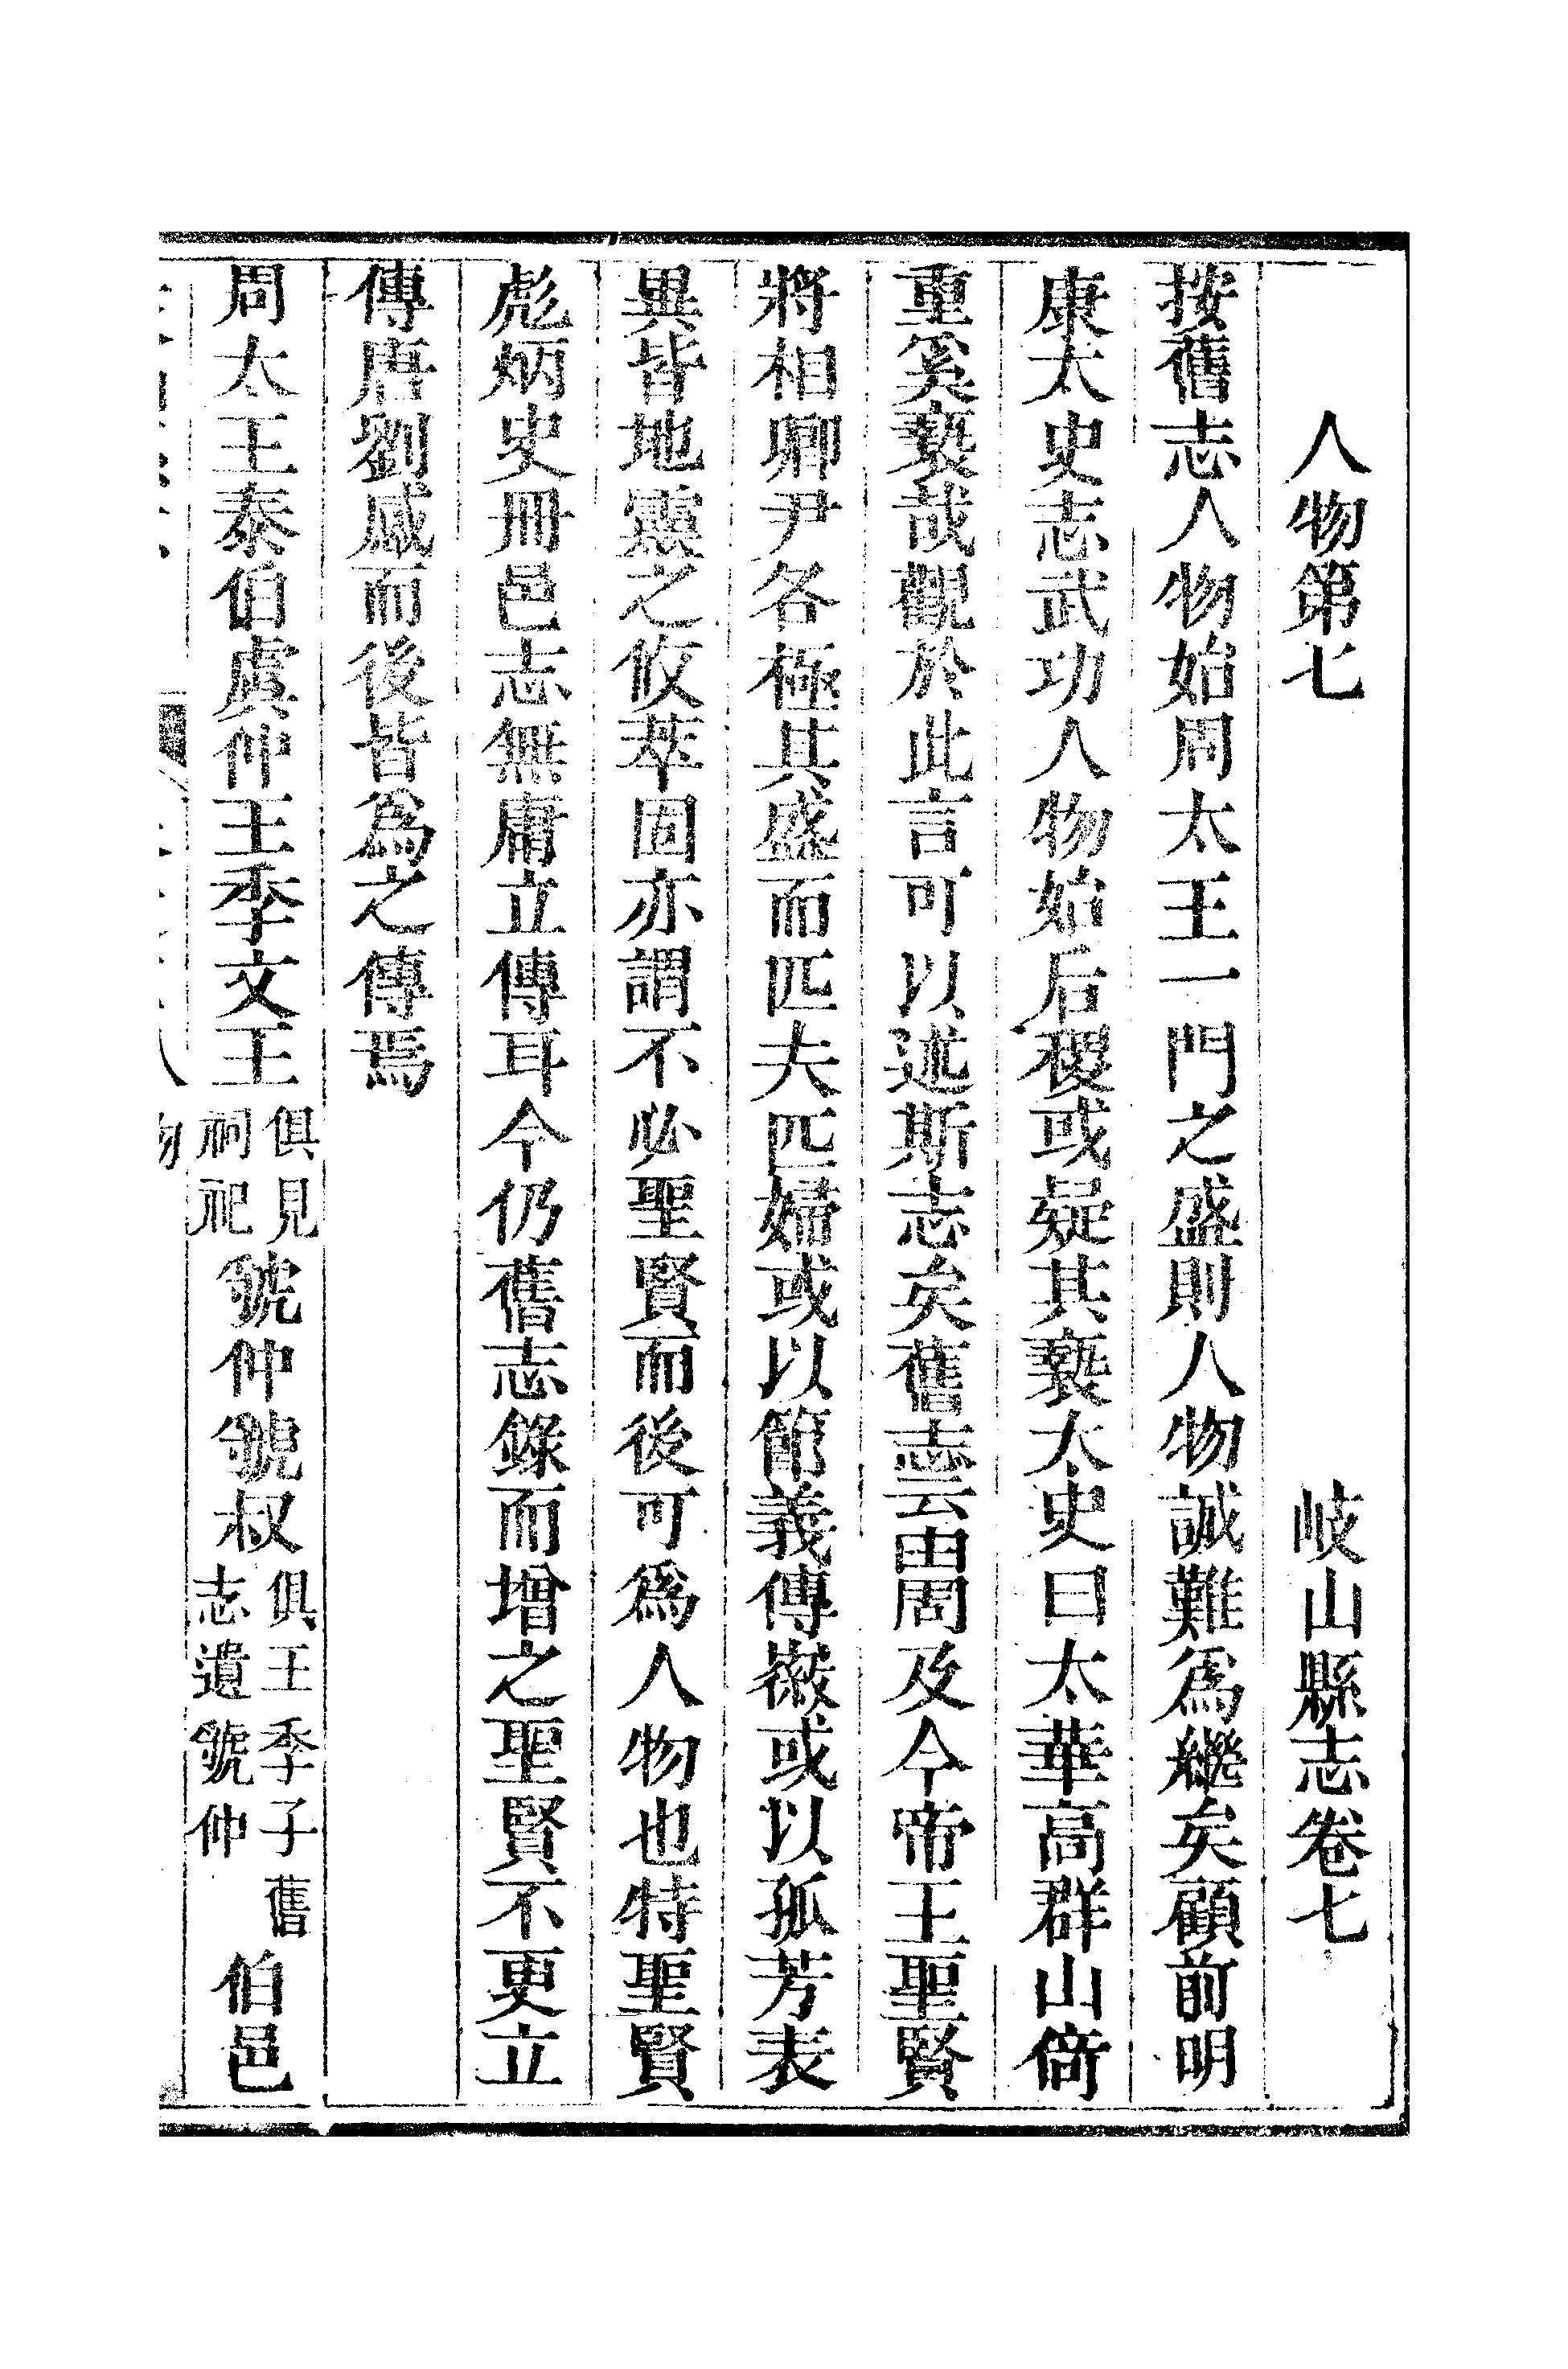 人物第七　岐山縣志卷七
按舊志人物始周太王一門之盛則人物誠難爲繼矣顧前明
康太史志武功人物始后稷或疑其褻太史曰太華高群山倚
重奚褻哉觀於此言可以述斯志矣舊志云由周及今帝王聖賢
將相卿尹各極其盛而匹夫匹婦或以節義傳徽或以孤芳表
異皆地靈之攸萃固亦謂不必聖賢而後可爲人物也特聖賢
彪炳史冊邑志無庸立傳耳今仍舊志錄而增之聖賢不更立
傳唐劉感而後皆爲之傳焉
周太王泰伯虞仲王季文王俱見祠祀虢仲虢叔俱王季子舊志遺虢仲伯邑